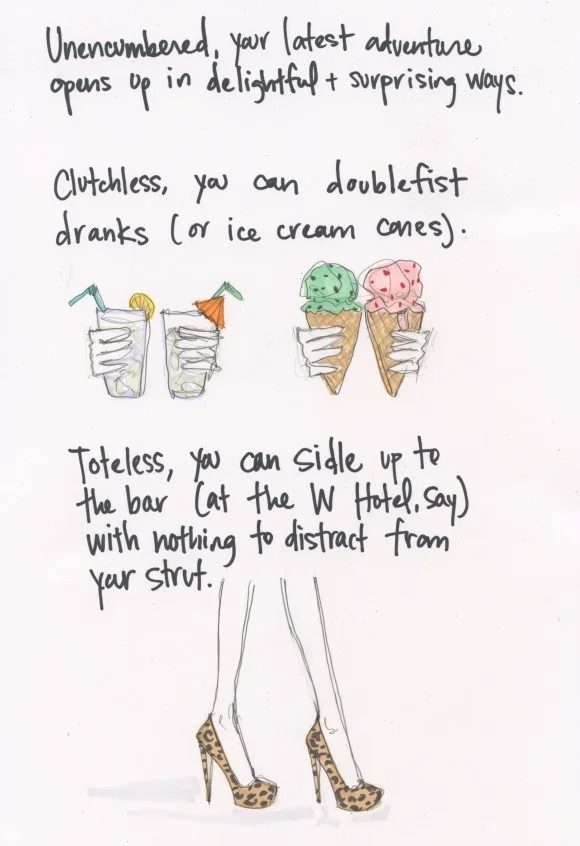 Unencumbered, your latest adventure
opens up in delightful + surprising ways.
Clutchless, you can doublefist
dranks (or ice cream cones).
Toteless, you can sidle up to
the bar (at the W Hotel, say)
with nothing to distract from
your strut.